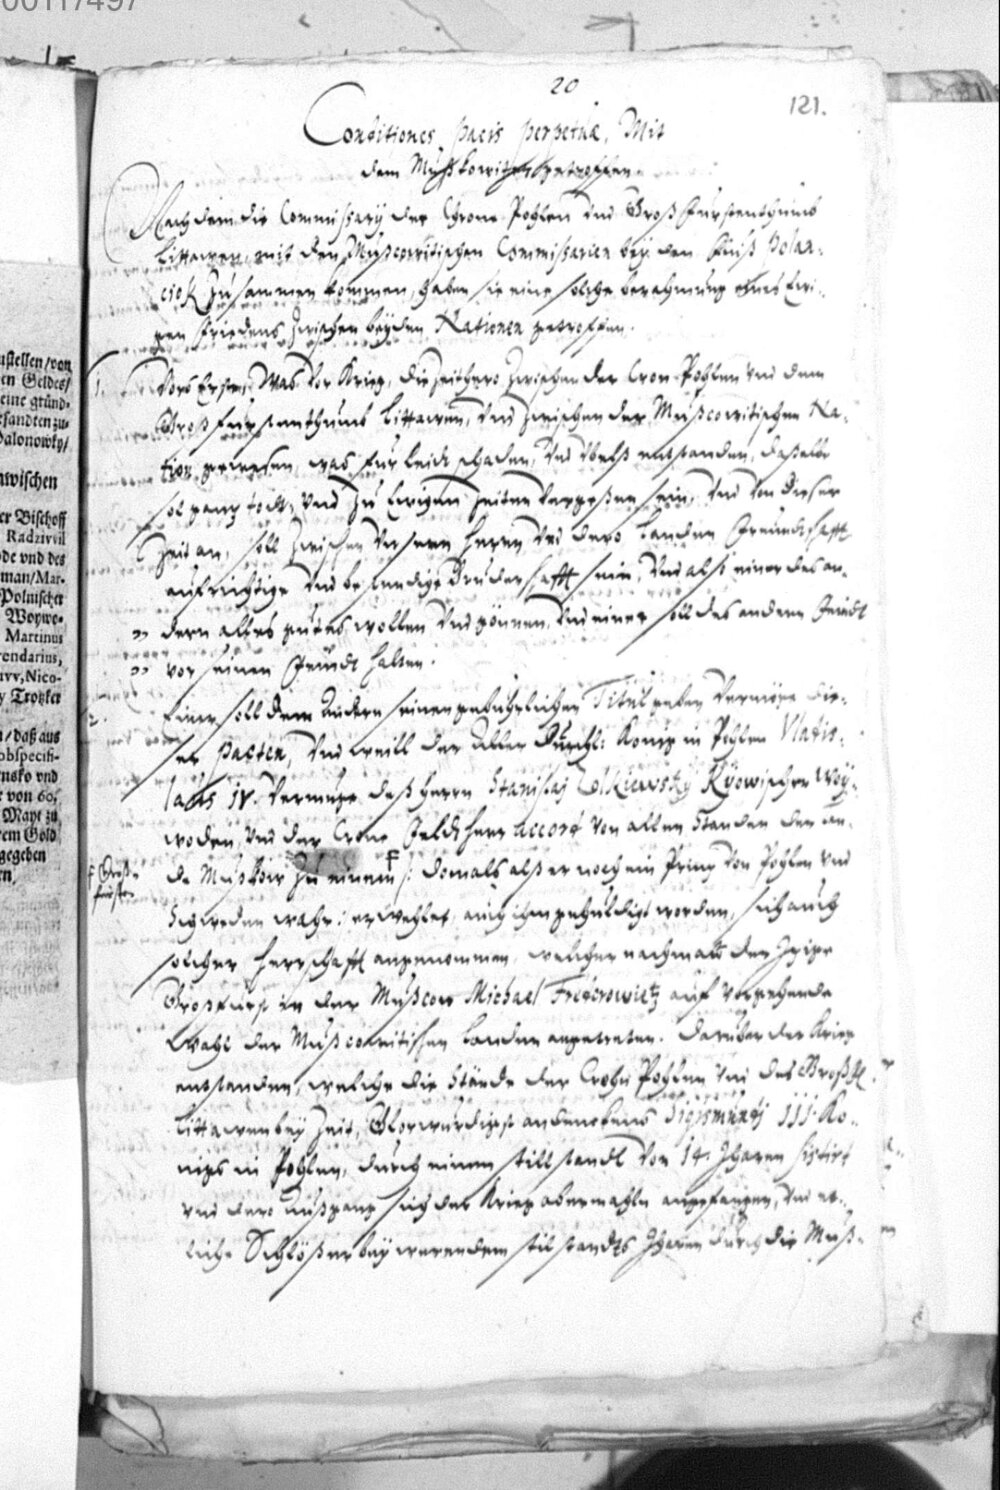 00117497
20
121.
Conditiones pacis perpetuæ, Mit
dem Mußkowiter getroffen
Nach dem die Commissarÿ der Chrone Pohlen vnd Groß Fürstenthumb
Littawen, mit den Mußcowitischen Commissarien beÿ dem fluß Polan-
ciok zusammen kommen, haben sie eine solche berahmung eines Ewi-
gen friedens zwischen beÿden Nationen getroffen.
1. Vors Erste, Was vor Krieg, die Zeithero zwischen der Cron Pohlen vnd dem
Groß Fürstenthumb Littawen, vnd zwischen der Mußcowitischen Na-
tion gewesen, was für leidt schaden, vnd vbelß entstanden, daßelbe
sol gantz todt, vnd zu Ewigen Zeiten vergeßen sein, vnd von dieser
Zeit an, soll zwischen vnsern Herrn vnd dero Landen Freundtschafft
aufrichtige vnd bestendige Bruderschafft sein, vnd also einer des an-
dern alles gutes wollen vnd gönnen, vnd einer soll des andern Feindt
vor seinen Feindt halten.
2. Einer soll dem Andern seinen gebührlichen Titul geben vermöge die-
ser pacten, vnd weill der Aller Durchl: König in Pohlen Vladis-
laus IV. vermuge deß Herrn Stanislaj Zolkiewskÿ Kÿowischen Woÿ-
woden vnd der Crone Feldtherr accord von allen Standen der an-
de Mußkow zu einem F /: domals alß er noch ein Printz von Pohlen vnd
F Groß-
fürsten
Schweden wahr: erwehlet, auch ihm gehuldigt worden, sich auch
solcher Herrschafft angenommen, welcher nachmals der Itzige
Großfürst in der Mußcow Michael Fridrowietz auf vorgehende
Wahl der Mußcowitischen Landen angetreten. Darüber der Krieg
entstanden, welche die Stände der Crohn Pohlen vnd des Großfl
Littawen beÿ Zeit, Glorwürdigst andenckens Sigismundj III. Kö-
nigs in Pohlen, durch einen stillstandt von 14. Jharen sistirt
vnd dero Außgang sich der Krieg abermahln angefangen, vnd et-
liche Schlößer beÿ werendem stilstandts Jharen durch die Muß-
ustellen/von
en Geldes/
eine gründ-
esandten zu-
Dalonowky/
zwischen
er Bischoff
Radzivil
de vnd des
man/Mar-
Polnischer
Woywo-
Martinus
endarius,
vv, Nico-
y Trotzker
n/ daß aus
obspecifi-
ensko vnd
t von 60.
Maye zu
rem Gold
gegeben
en.